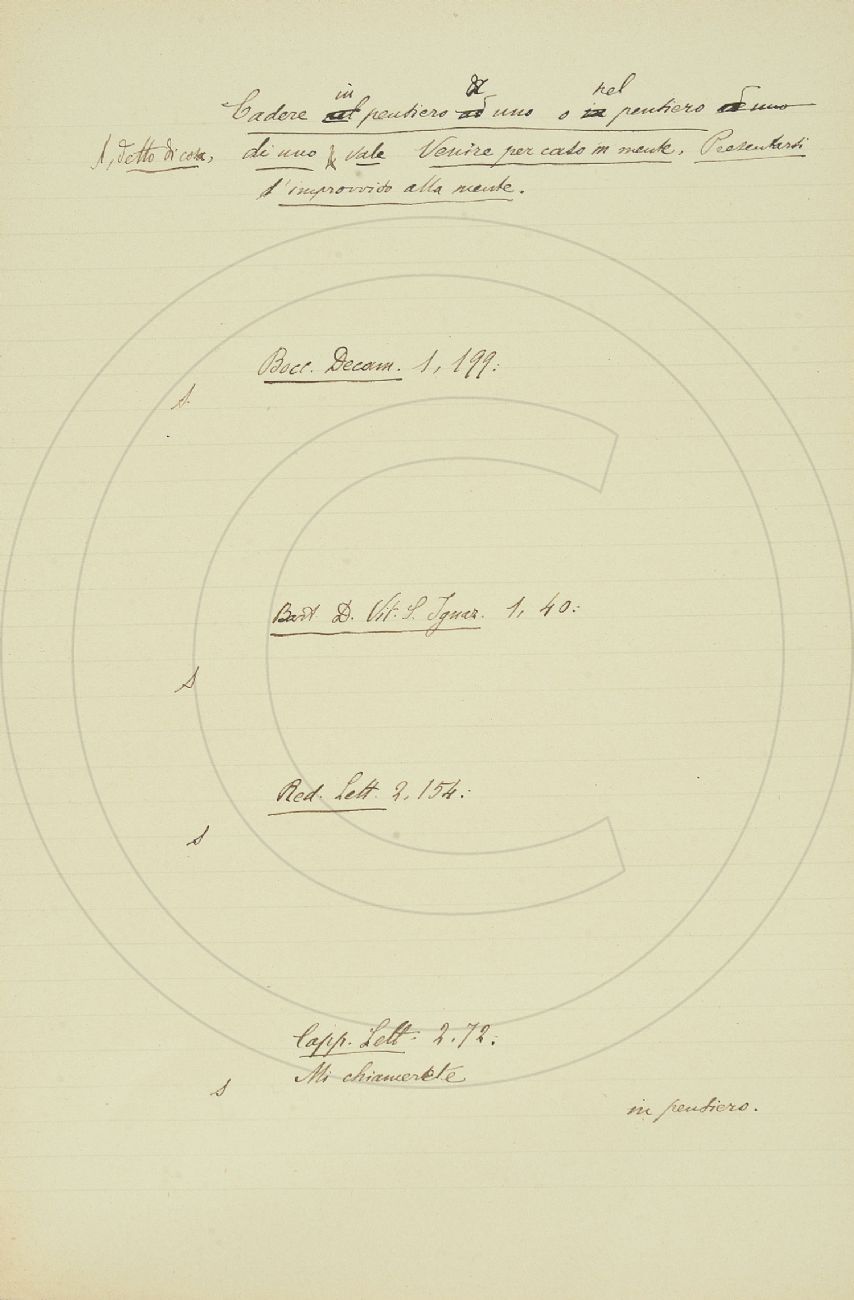 Cadere in pensiero ad uno o nel pensiero
s, detto di cosa, di uno vale Venire per caso in mente, Presentarsi
d'improvviso alla mente.
Bocc. Decam. 1, 199:
s.
Bart. D. Vit. S. Ignaz. 1, 40:
s
Red. Lett. 2, 154:
s
Capp. Lett. 2, 72:
Mi chiamerete
s
in pensiero.